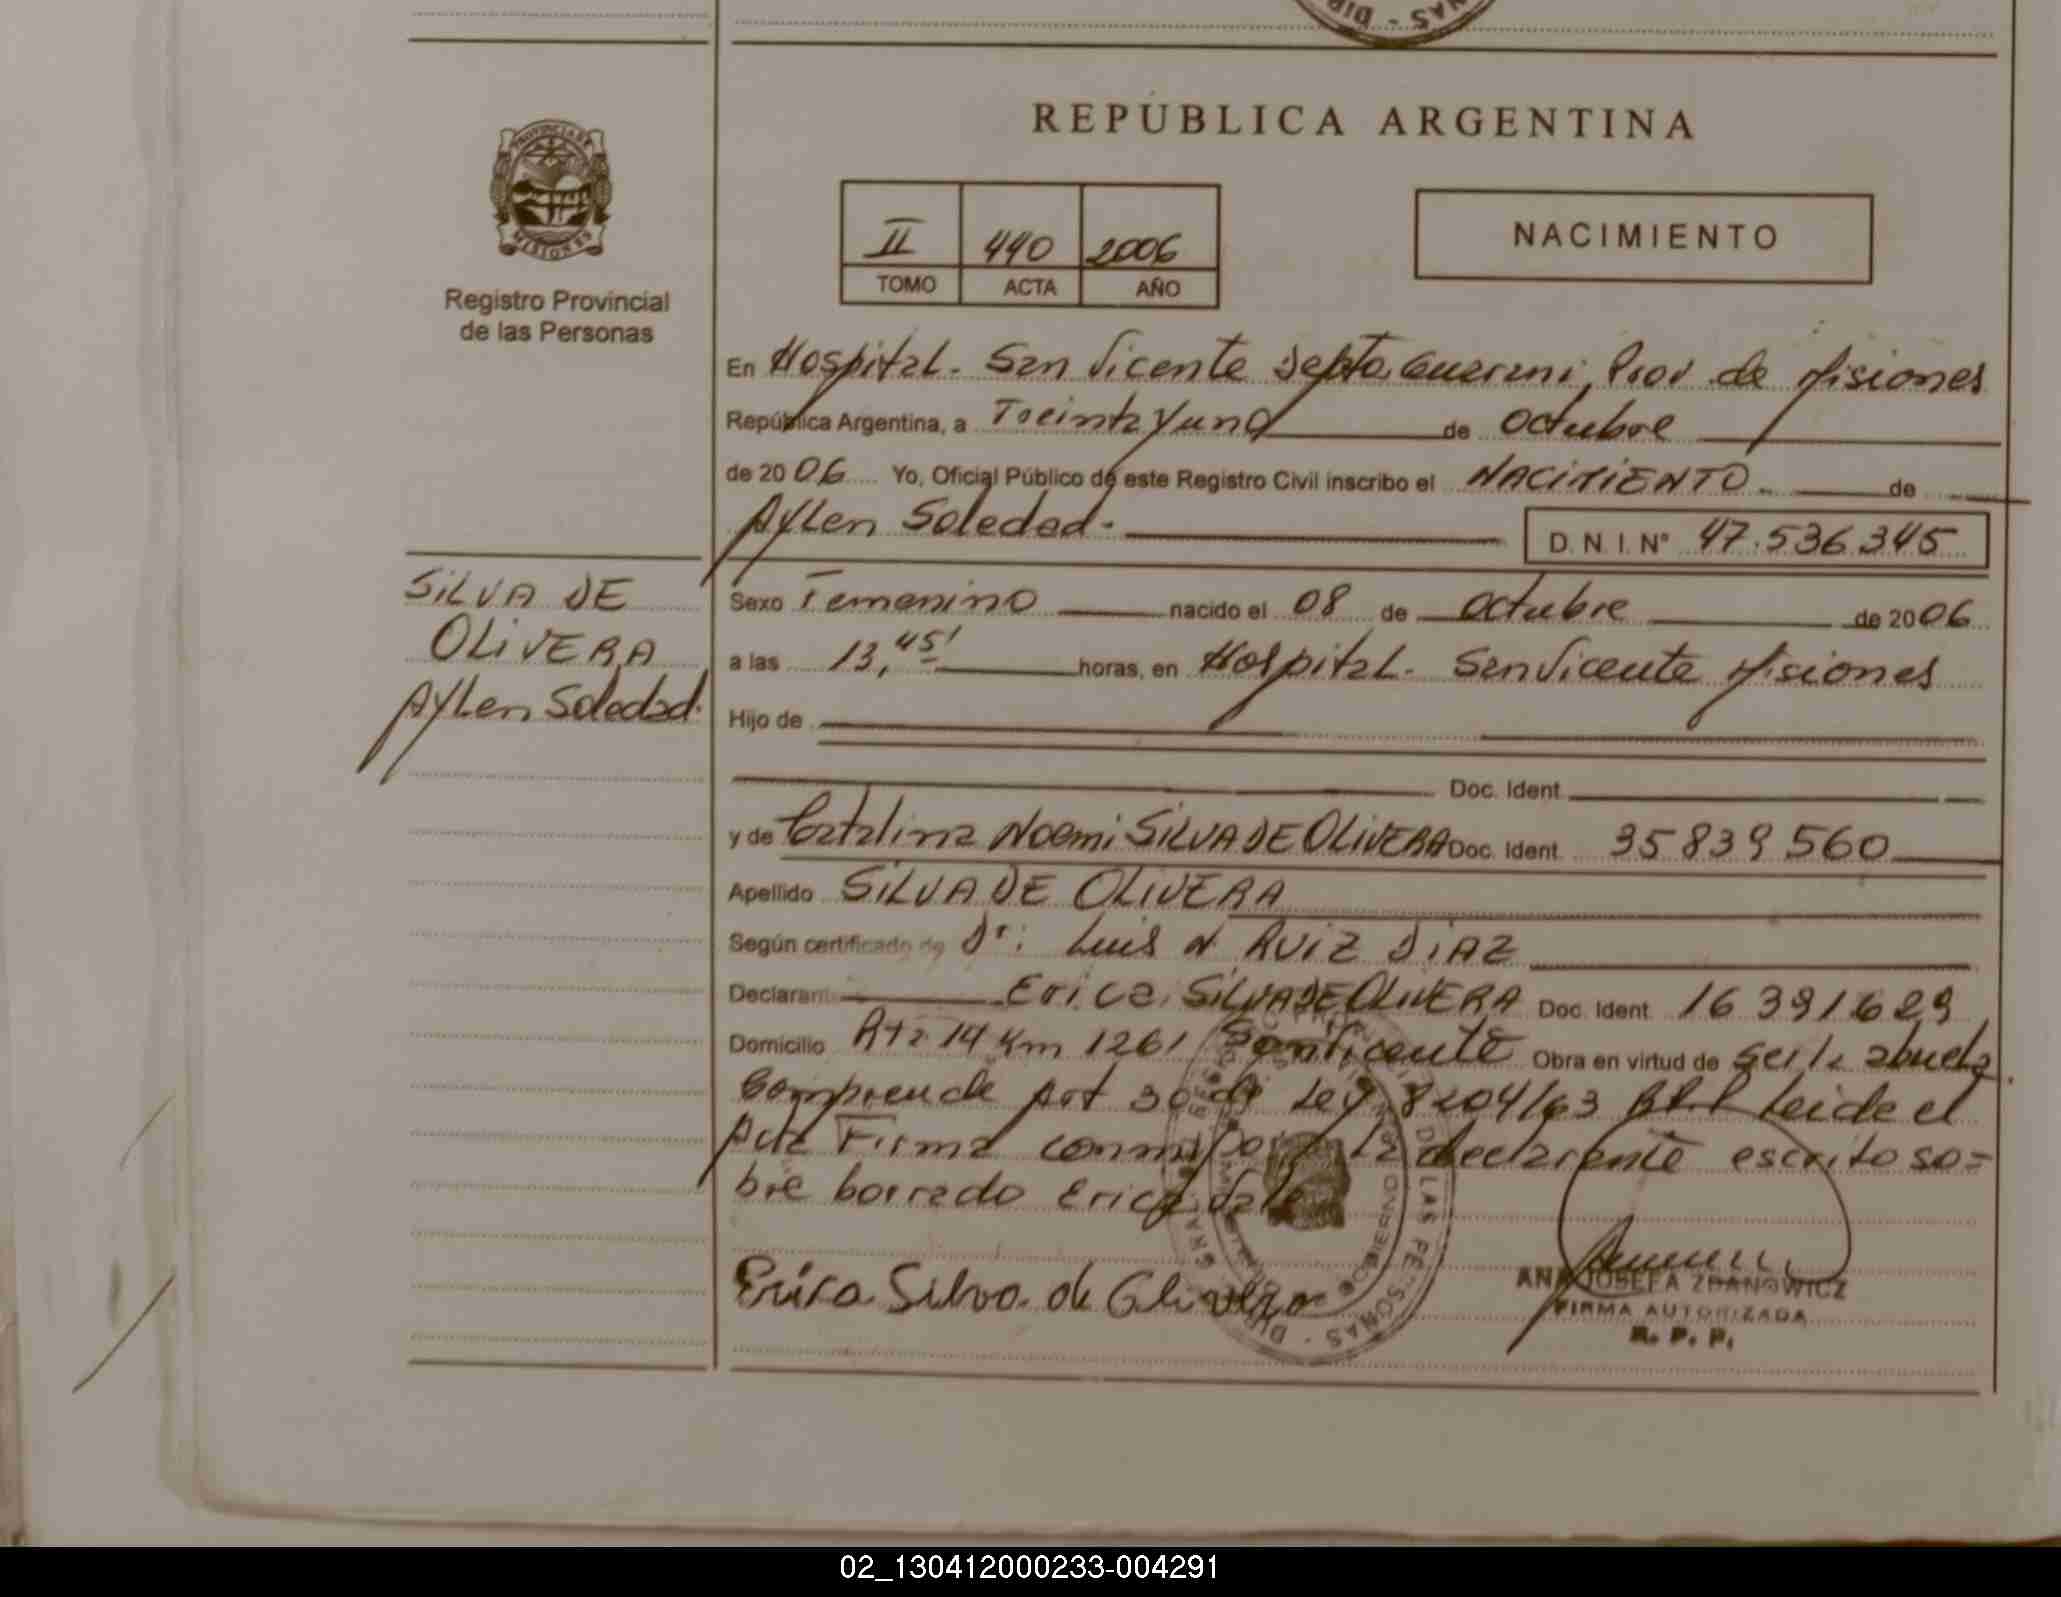 REPÚBLICA ARGENTINA
PROVINCIA DE
MISIONES
Registro Provincial
de las Personas
II 440 2006
TOMO ACTA AÑO
NACIMIENTO
En Hospital. San Vicente Depto Guarani, Prov de Misiones
República Argentina, a Treinta y uno de Octubre
de 2006 Yo, Oficial Público de este Registro Civil inscribo el NACIMIENTO de
Aylen Soledad.
D. N. I. N° 47.536.345
SILVA DE
OLIVERA
Aylen Soledad.
Sexo Femenino nacido el 08 de Octubre de 2006
a las 13,45' horas, en Hospital. San Vicente Misiones
Hijo de
Doc. Ident.
y de Catalina Noemi SILVA DE OLIVERA Doc. Ident. 35839560
Apellido SILVA DE OLIVERA
Según certificado de Dr: Luis A RUIZ DIAZ
Declarante Erica SILVA DE OLIVERA Doc. Ident. 16391629
Domicilio Rta 14 Km 1261 San Vicente Obra en virtud de ser la abuela
Comprende Art 30 de Ley 8204/63 Leide el
Acta Firma conmigo la declarante escrito so=
bre borrado Erica Vale
Erica Silva de Olivera
ANA JOSEFA ZDANOWICZ
FIRMA AUTORIZADA
R. P. P.
02_130412000233-004291